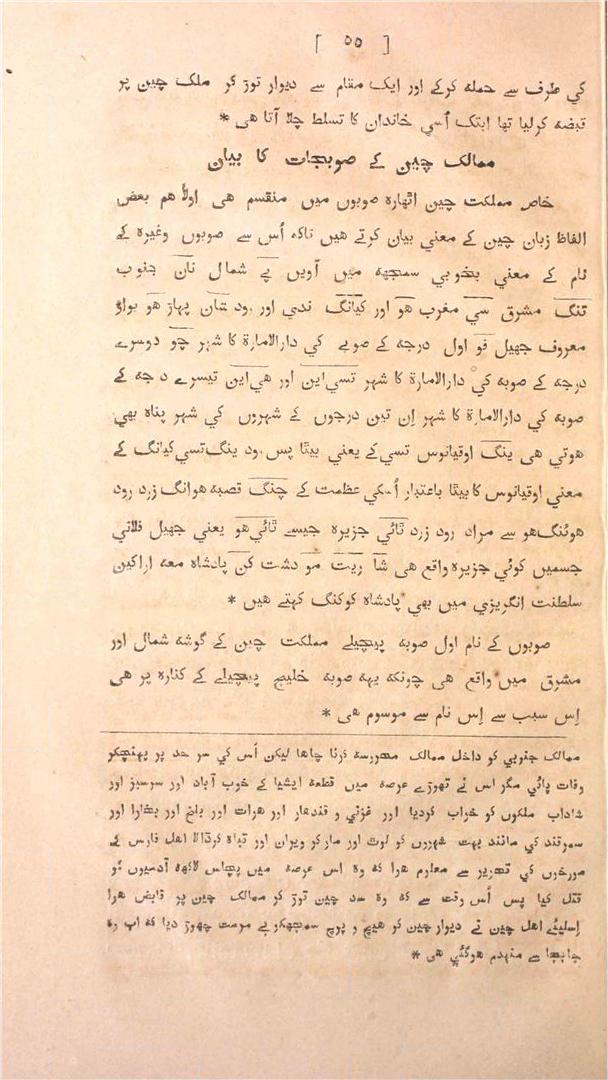 [ ٥٥ ]
کي طرف سے حملہ کرکے اور ایک مقام سے دیوار توڑ کر ملک چین پر
قبضہ کرلیا تھا ابتک اُسي خاندان کا تسلط چلا آتا ھی *
ممالک چین کے صوبجات کا بیان
خاص مملکت چین اٹھارہ صوبوں میں منقسم ھی اولاً ھم بعض
الفاظ زبان چین کے معني بیان کرتے ھیں تاکہ اُس سے صوبوں وغیرہ کے
نام کے معني بخوبي سمجھہ میں آویں پے شمال نان جنوب
تنگ مشرق سي مغرب ھو اور کیانگ ندي اور رود شان پہاڑ ھو بواؤ
معروف جھیل فو اول درجہ کے صوبے کي دارالامارة کا شہر چو دوسرے
درجہ کے صوبہ کي دارالامارة کا شہر تسي این اور ھي این تیسرے درجہ کے
صوبہ کي دارالامارة کا شہر اِن تین درجوں کے شہروں کي شہر پناہ بھي
ھوتي ھی ینگ اوقیانوس تسي کے یعني بیٹا پس رود ینگ تسي کیانگ کے
معني اوقیانوس کا بیٹا باعتبار اُسکي عظمت کے چنگ قصبہ ھوانگ زرد رود
ھوئنگ ھو سے مراد رود زرد ٹائي جزیرہ جیسے ٹائي ھو یعني جھیل فلاني
جسمیں کوئي جزیرہ واقع ھی شا ریت مو دشت کن پادشاہ معہ اراکین
سلطنت انگریزي میں بھي پادشاہ کو کنگ کہتے ھیں *
صوبوں کے نام اول صوبہ پیچیلے مملکت چین کے گوشہ شمال اور
مشرق میں واقع ھی چونکہ یہہ صوبہ خلیج پیچیلے کے کنارہ پر ھی
اِس سبب سے اِس نام سے موسوم ھی *
ممالک جنوبي کو داخل ممالک محروسہ کرنا چاھا لیکن اُس کي سر حد پر پہنچکر
وفات پائي مگر اس نے تھوڑے عرصہ میں قطعہ ایشیا کے خوب آباد اور سرسبز اور
شاداب ملکوں کو خراب کردیا اور غزني و قندھار اور ھرات اور بلخ اور بخارا اور
سمرقند کي مانند بہت شہروں کو لوٹ اور مار کر ویران اور تباہ کرڈالا اھل فارس کے
مورخوں کي تحریر سے معلوم ھوا کہ وہ اس عرصہ میں پچاس لاکھہ آدمیوں کو
قتل کیا پس اُس وقت سے کہ وہ سد چین توڑ کر ممالک چین پر قابض ھوا
اِسلیئے اھل چین نے دیوار چین کو ھیچ و پوچ سمجھکر بے مرمت چھوڑ دیا کہ اب وہ
جابجا سے منہدم ھوگئي ھی *